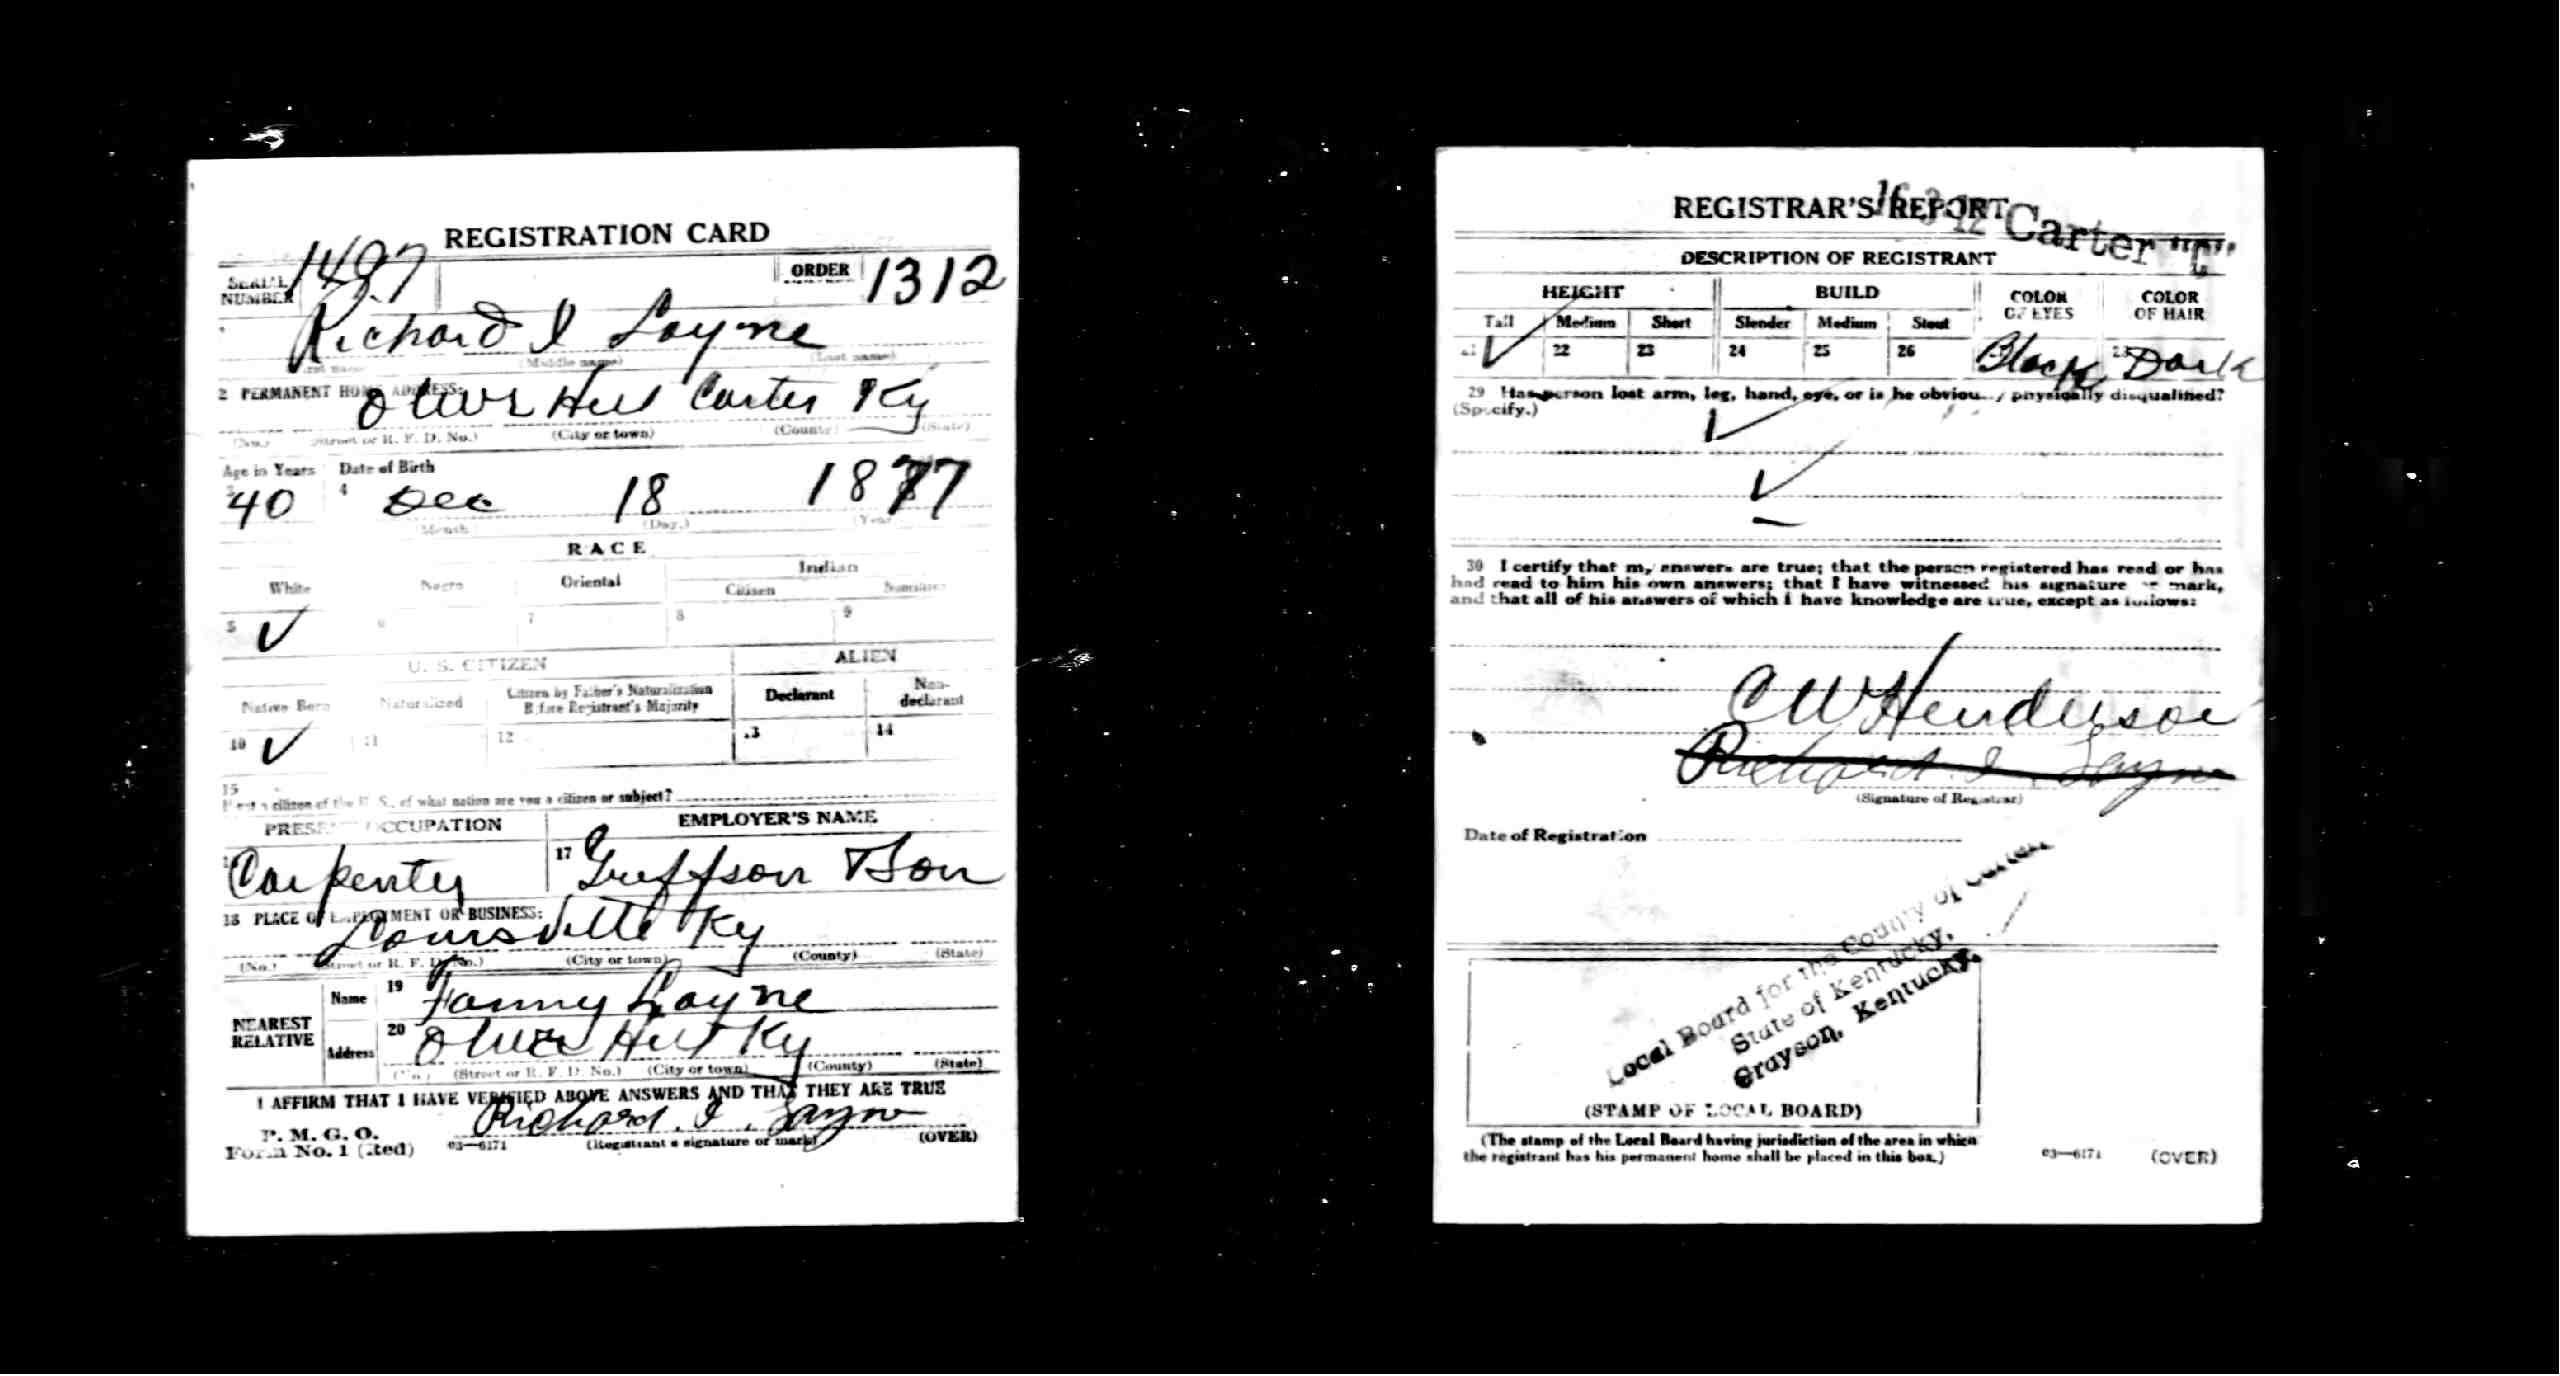 REGISTRATION CARD
SERIAL NUMBER 1497 ORDER 1312
Richard I Layne
(Middle name) (Last name)
2 PERMANENT HOME ADDRESS:
Olive Hill Carter Ky
(No.) (Street or R. F. D. No.) (City or town) (County) (State)
Age in Years Date of Birth
3 40 4 Dec 18 1877
Month (Day.) (Year
RACE
White Negro Oriental Indian
Citizen Noncitizen
5 ✓ 6 7 8 9
U. S. CITIZEN ALIEN
Native Born Naturalized Citizen by Father's Naturalization Before Registrant's Majority Declarant Non-declarant
10 ✓ 11 12 13 14
15
If not a citizen of the U. S., of what nation are you a citizen or subject?
PRESENT OCCUPATION EMPLOYER'S NAME
Carpenter 17 Son
18 PLACE OF EMPLOYMENT OR BUSINESS:
Louisville Ky
(No.) (Street or R. F. D. No.) (City or town) (County) (State)
NEAREST RELATIVE
Name 19 Fanny Layne
Address 20 Olive Hill Ky
(No.) (Street or R. F. D. No.) (City or town) (County) (State)
I AFFIRM THAT I HAVE VERIFIED ABOVE ANSWERS AND THAT THEY ARE TRUE
P. M. G. O.
Form No. 1 (Red) 03—6171 Richard. I. Layne
(Registrant's signature or mark) (OVER)
REGISTRAR'S REPORT
16-3-12 Carter "C"
DESCRIPTION OF REGISTRANT
HEIGHT BUILD COLOR OF EYES COLOR OF HAIR
Tall Medium Short Slender Medium Stout
21 ✓ 22 23 24 25 26 Black 28 Dark
29 Has person lost arm, leg, hand, eye, or is he obviously physically disqualified?
(Specify.)
30 I certify that my answers are true; that the person registered has read or has
had read to him his own answers; that I have witnessed his signature or mark,
and that all of his answers of which I have knowledge are true, except as follows:
C W Henderson
Richard. I. Layne
(Signature of Registrar)
Date of Registration
Local Board for the County of Carter
State of Kentucky,
Grayson, Kentucky.
(STAMP OF LOCAL BOARD)
(The stamp of the Local Board having jurisdiction of the area in which
the registrant has his permanent home shall be placed in this box.)
03—6171 (OVER)